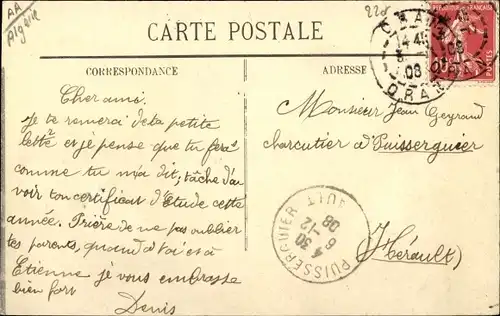 AA
Algérie
228
CARTE POSTALE
CORRESPONDANCE
ADRESSE
ORAN
08
REPUBLIQUE FRANÇAISE
POSTES
Cher ami.
Je te remerci de ta petite
lettre et je pense que tu feras
comme tu m'a dit, tâche d'a
voir ton certificat d'Etude cette
année. Prière de ne pas oublier
tes parents, quand a toi et à
Etienne je vous embrasse
bien fort
Denis
Monsieur Jean Geyraud
charcutier a Puisserguier
(Hérault)
PUISSERGUIER
HERAULT
4 30
6 -12
08